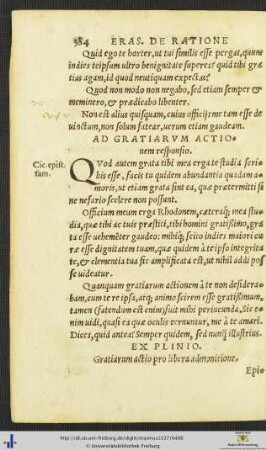 384 ERAS. DE RATIONE
Quid ego te horter, ut tui similis esse pergas, quum
indies teipsum ultro benignitate superes? quid tibi gra
tias agam, id quod neutiquam expectas?
Quod non modo non negabo, sed etiam semper &
meminero, & prædicabo libenter.
Non est alius quisquam, cuius officijs me tam esse de
uinctum, non solum fatear, uerum etiam gaudeam.
AD GRATIARVM ACTIO-
nem responsio.
Cic. epist.
fam.
QVod autem grata tibi mea erga te studia scri
bis esse, facis tu quidem abundantia quadam a-
moris, ut etiam grata sint ea, quæ prætermitti si
ne nefario scelere non possunt.
Officium meum erga Rhodonem, cæteraq; mea stu-
dia, quæ tibi ac tuis præstiti, tibi homini gratissimo, gra
ta esse uehementer gaudeo: mihiq; scito indies maiori cu
ræ esse dignitatem tuam, quæ quidem à te ipso integrita
te, & clementia tua sic amplificata est, ut nihil addi pos
se uideatur.
Quanquam gratiarum actionem à te non desidera-
bam, cum te re ipsa, atq; animo scirem esse gratissimum,
tamen (fatendum est enim) fuit mihi periucunda. Sic e-
nim uidi, quasi ea quæ oculis cernuntur, me à te amari.
Dices, quid antea? Semper quidem, sed nunq; illustrius.
EX PLINIO.
Gratiarum actio pro libera admonitione.
Epi-
http://dl.ub.uni-freiburg.de/diglit/erasmus1522/0400
© Universitätsbibliothek Freiburg
Baden-Württemberg